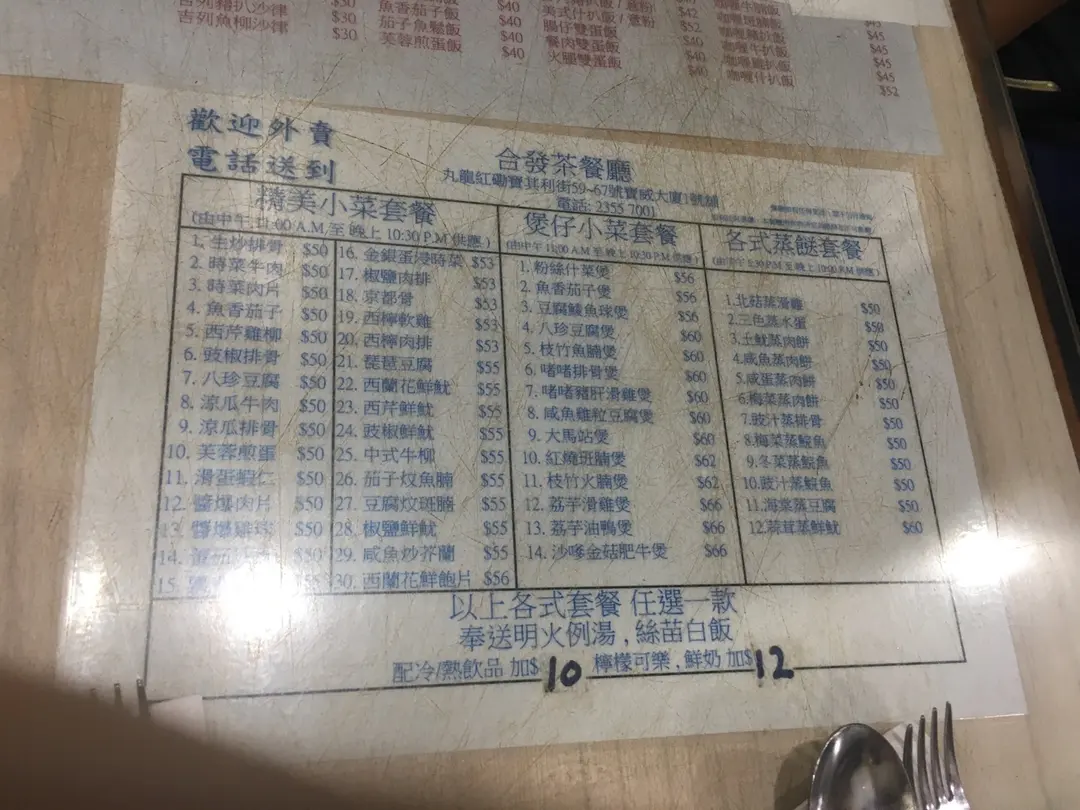 吉列豬扒沙律 $30
吉列魚柳沙律 $30
魚香茄子飯 $40
茄子魚鬆飯 $40
芙蓉煎蛋飯 $40
$42
腸仔雙蛋飯 $52
餐肉雙蛋飯 $40
火腿雙蛋飯 $40
$45
$45
咖喱牛扒飯 $45
$45
咖喱什扒飯 $52
歡迎外賣
電話送到
合發茶餐廳
丸龍紅磡寶其利街59~67號寶威大廈1號舖
電話: 2355 7001
精美小菜套餐
(由中午 11:00 A.M. 至 晚上 10:30 P.M 供應)
1. 生炒排骨 $50
2. 時菜牛肉 $50
3. 時菜肉片 $50
4. 魚香茄子 $50
5. 西芹雞柳 $50
6. 豉椒排骨 $50
7. 八珍豆腐 $50
8. 涼瓜牛肉 $50
9. 涼瓜排骨 $50
10. 芙蓉煎蛋 $50
11. 滑蛋蝦仁 $50
12. 醬爆肉片 $50
13. 醬爆雞球 $50
14. $50
15.
16. 金銀蛋浸時菜 $53
17. 椒鹽肉排 $53
18. 京都骨 $53
19. 西檸軟雞 $53
20. 西檸肉排 $53
21. 琵琶豆腐 $55
22. 西蘭花鮮魷 $55
23. 西芹鮮魷 $55
24. 豉椒鮮魷 $55
25. 中式牛柳 $55
26. 茄子炆魚腩 $55
27. 豆腐炆斑腩 $55
28. 椒鹽鮮魷 $55
29. 咸魚炒芥蘭 $55
30. 西蘭花鮮鮑片 $56
煲仔小菜套餐
(由中午 11:00 A.M 至 晚上 10:30 P.M 供應)
1. 粉絲什菜煲 $56
2. 魚香茄子煲 $56
3. 豆腐鯪魚球煲 $56
4. 八珍豆腐煲 $60
5. 枝竹魚腩煲 $60
6. 啫啫排骨煲 $60
7. 啫啫豬肝滑雞煲 $60
8. 咸魚雞粒豆腐煲 $60
9. 大馬站煲 $60
10. 紅燒斑腩煲 $62
11. 枝竹火腩煲 $62
12. 荔芋滑雞煲 $66
13. 荔芋油鴨煲 $66
14. 沙嗲金菇肥牛煲 $66
各式蒸餸套餐
(由中午 5:30 P.M 至 晚上 10:00 P.M 供應)
1.北菇蒸滑雞 $50
2.三色蒸水蛋 $50
3.土魷蒸肉餅 $50
4.咸魚蒸肉餅 $50
5.咸蛋蒸肉餅 $50
6.梅菜蒸肉餅 $50
7.豉汁蒸排骨 $50
8.梅菜蒸鯇魚 $50
9.冬菜蒸鯇魚 $50
10.豉汁蒸鯇魚 $50
11.海棠蒸豆腐 $50
12.蒜茸蒸鮮魷 $60
以上各式套餐 任選一款
奉送明火例湯 , 絲苗白飯
配冷/熱飲品 加$10 檸檬可樂 , 鮮奶 加$12